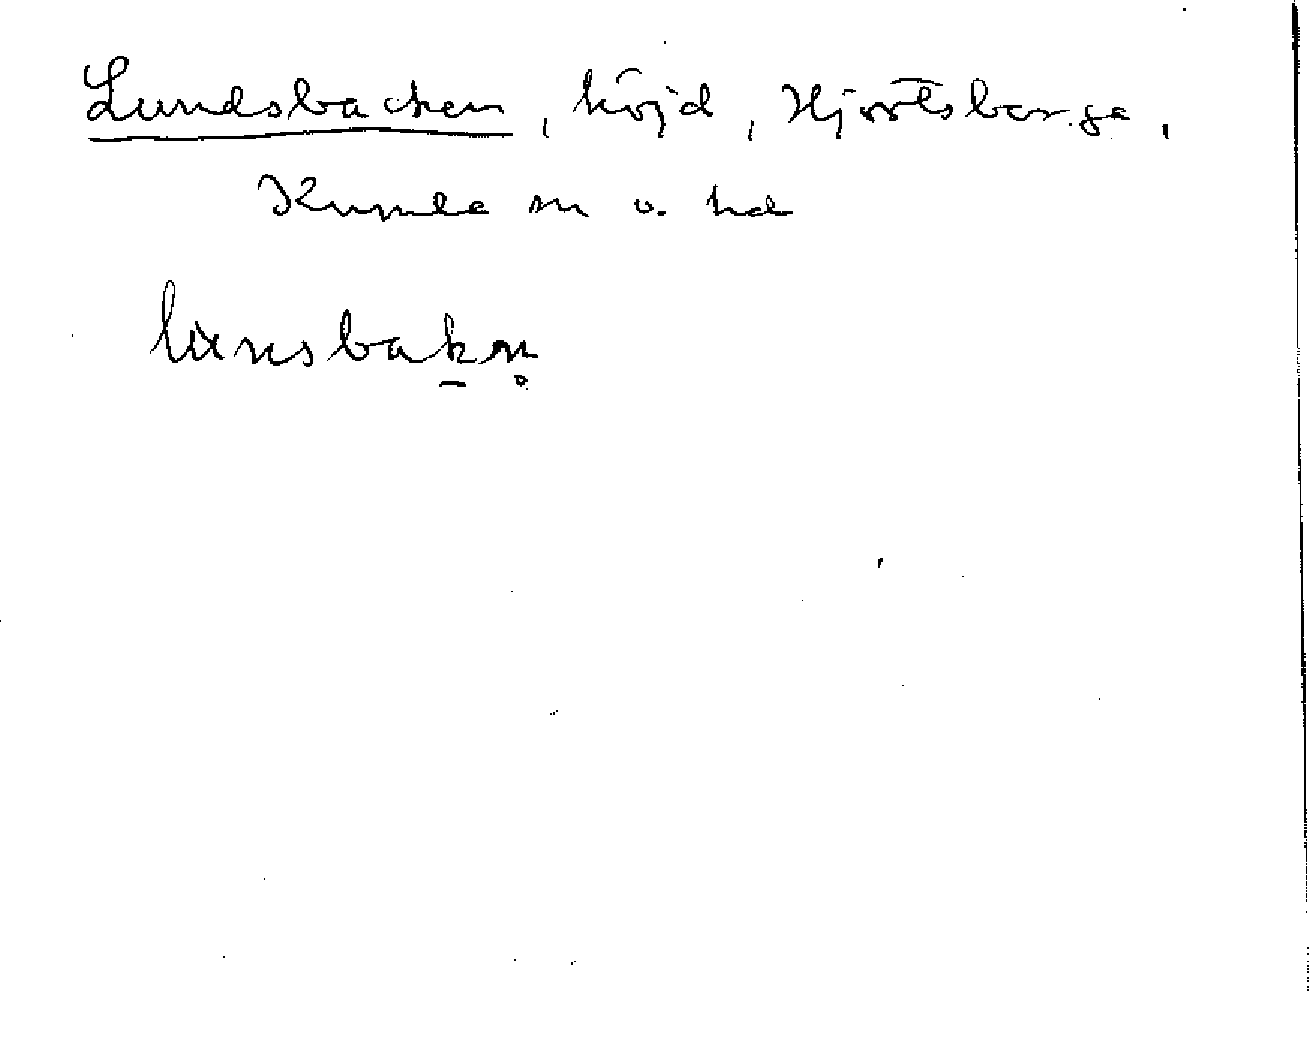 Lundsbacken, höjd, Hjortsberga,
Kumla sn o. hd
lunsbakn̥